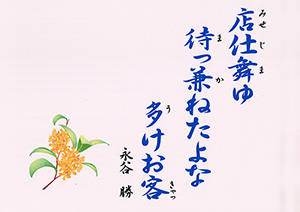 店仕舞ゆ
待っ兼ねたよな
多けお客
永谷 勝
みせじま
まか
う
きゃっ